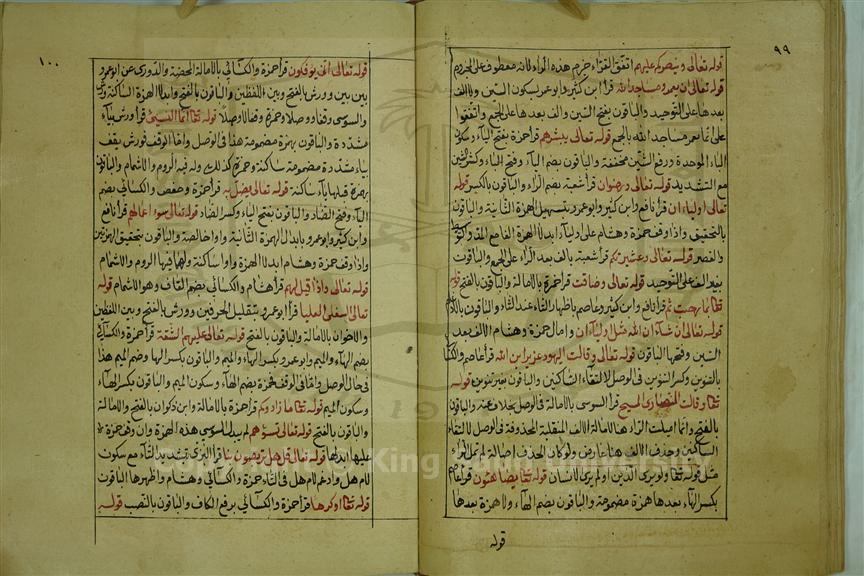 ٩٩
قوله تعالى وينصركم عليهم اتفق القراء على جزم هذه الواو لانه معطوف على المجزوم
قوله تعالى ان يعمروا مساجد الله قرأ ابن كثير وابو عمرو بسكون السين ولا الف
بعدها على التوحيد والباقون بفتح السين والف بعدها على الجمع واتفقوا
على انما يعمر مساجد الله بالجمع قوله تعالى يبشرهم قرأ حمزة بفتح الياء وسكون
الباء الموحدة ورفع الشين مخففة والباقون بضم الياء وفتح الباء وكسر الشين
مع التشديد قوله تعالى ورضوان قرأ شعبة بضم الراء والباقون بالكسر قوله
تعالى اولياء ان قرأ نافع وابن كثير وابو عمرو بتسهيل الهمزة الثانية والباقون
بالتحقيق واذا وقف حمزة وهشام على اولياء ابدلا الهمزة الفا مع المد والتوسط
والقصر قوله تعالى وعشيرتكم قرأ شعبة بالف بعد الراء على الجمع والباقون
بغير الف على التوحيد قوله تعالى وضاقت قرأ حمزة بالامالة والباقون بالفتح قوله
تعالى بما رحبت ثم قرأ نافع وابن كثير وعاصم باظهار التاء عند الثاء والباقون بالادغام
قوله تعالى ان شاء ان الله وامال حمزة وهشام الالف بعد
الشين وفتحها الباقون قوله تعالى وقالت اليهود عزير ابن الله قرأ عاصم والكسائي
بالتنوين وكسر التنوين في الوصل لالتقاء الساكنين والباقون بغير تنوين قوله
تعالى وقالت النصارى المسيح قرأ السوسي بالامالة في الوصل بخلاف عنه والباقون
بالفتح وانما اميلت الراء هنا لامالة الالف المنقلبة المحذوفة في الوصل لالتقاء
الساكنين وحذف الالف هنا عارض ولو كان الحذف اصالة لم تمل الراء
مثل قوله تعالى ولو يرى الذين اولم ير الانسان قوله تعالى يضاهئون قرأ عاصم
بكسر الهاء بعدها همزة مضمومة والباقون بضم الهاء ولا همزة بعدها
قوله
١٠٠
قوله تعالى انى يؤفكون قرأ حمزة والكسائي بالامالة المحضة والدوري عن ابو عمرو
بين بين وورش بالفتح وبين اللفظين والباقون بالفتح وابدل الهمزة الساكنة ورش
والسوسي وقفا ووصلا وحمزة وقفا لا وصلا قوله تعالى انما النسيء قرأ ورش بياء
مشددة والباقون بهمزة مضمومة هذا في الوصل واما الوقف فورش يقف
بياء مشددة مضمومة ساكنة وحمزة كذلك وله فيه الروم والاشمام والباقون
بهمزة قبلها ياء ساكنة قوله تعالى يضل به قرأ حمزة وحفص والكسائي بضم
الياء وفتح الضاد والباقون بفتح الياء وكسر الضاد قوله تعالى سوء اعمالهم قرأ نافع
وابن كثير وابو عمرو بابدال الهمزة الثانية واوا خالصة والباقون بتحقيق الهمزتين
واذا وقف حمزة وهشام ابدلا الهمزة واوا ساكنة ولهما فيها الروم والاشمام
قوله تعالى واذا قيل لهم قرأ هشام والكسائي بضم القاف وهو الاشمام قوله
تعالى السفلى العليا قرأ ابو عمرو بتقليل الحرفين وورش بالفتح وبين اللفظين
والاخوان بالامالة والباقون بالفتح قوله تعالى عليهم الشقة قرأ حمزة والكسائي
بضم الهاء والميم وابو عمرو بكسر الهاء والميم والباقون بكسر الهاء وضم الميم هذا
في حال الوصل واما في الوقف فحمزة بضم الهاء وسكون الميم والباقون بكسر الهاء
وسكون الميم قوله تعالى ما زادوكم قرأ حمزة بالامالة وابن ذكوان بالفتح والامالة
والباقون بالفتح قوله تعالى تسؤهم لم يبدل السوسي هذه الهمزة وان وقف حمزة
عليها ابدلها قوله تعالى قل هل تربصون بنا قرأ البزي بتشديد التاء مع سكون
لام هل وادغم لام هل في التاء حمزة والكسائي وهشام واظهرها الباقون
قوله تعالى او كرها قرأ حمزة والكسائي برفع الكاف والباقون بالنصب قوله